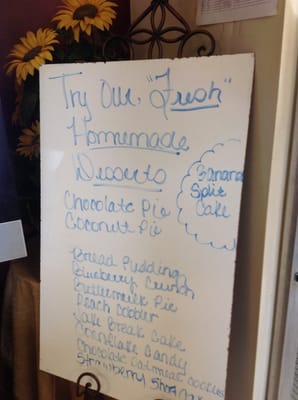 Try Our "Fresh"
Homemade
Desserts
Banana
Split
Cake
Chocolate Pie
Coconut Pie
Bread Pudding
Blueberry Crunch
Buttermilk Pie
Peach Cobbler
Lake Break Cake
Cornflake Candy
Chocolate Oatmeal Cookies
Strawberry Shortcake